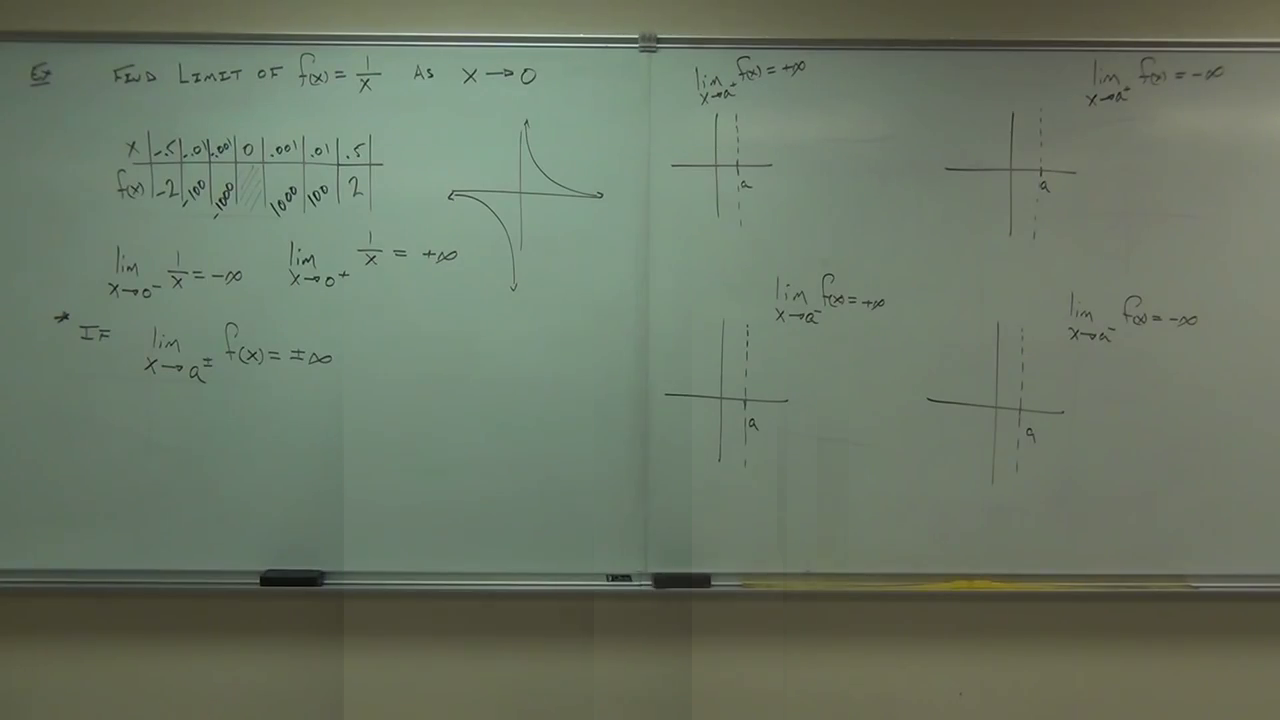 Ex FIND LIMIT OF f(x) = 1/x AS x → 0
x -.5 -.01 -.001 0 .001 .01 .5
f(x) -2 -100 -1000 1000 100 2
lim x→0⁻ 1/x = -∞ lim x→0⁺ 1/x = +∞
* IF lim x→a± f(x) = ±∞
lim x→a⁺ f(x) = +∞
a
lim x→a⁺ f(x) = -∞
a
lim x→a⁻ f(x) = +∞
a
lim x→a⁻ f(x) = -∞
a